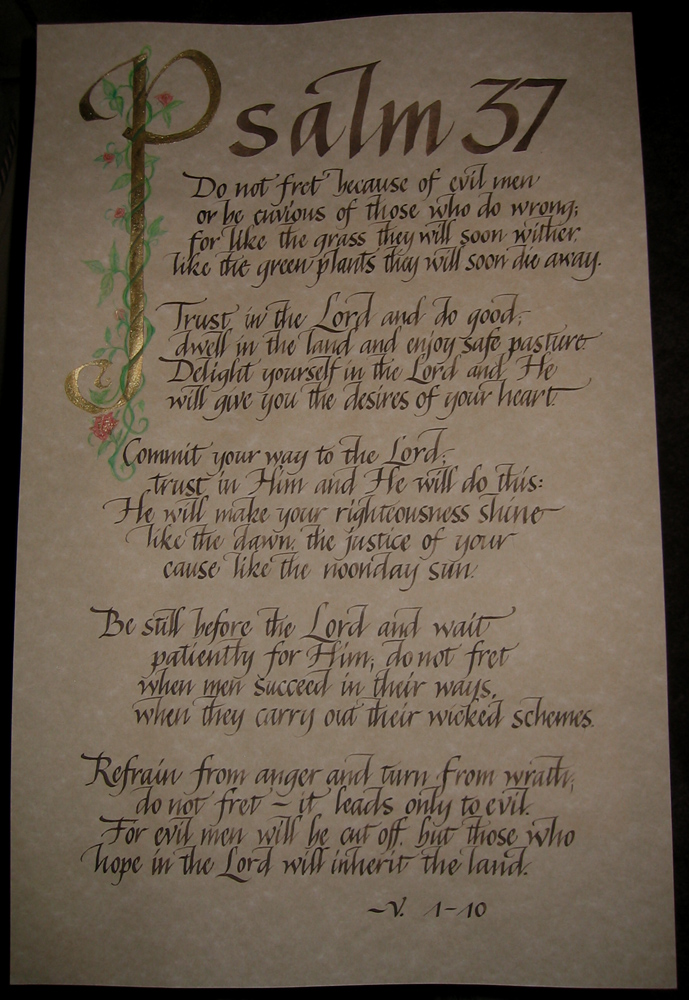 Psalm 37
Do not fret because of evil men
or be envious of those who do wrong;
for like the grass they will soon wither.
like the green plants they will soon die away.
Trust in the Lord and do good;
dwell in the land and enjoy safe pasture.
Delight yourself in the Lord and He
will give you the desires of your heart.
Commit your way to the Lord;
trust in Him and He will do this:
He will make your righteousness shine
like the dawn. the justice of your
cause like the noonday sun.
Be still before the Lord and wait
patiently for Him; do not fret
when men succeed in their ways,
when they carry out their wicked schemes.
Refrain from anger and turn from wrath;
do not fret – it leads only to evil.
For evil men will be cut off. but those who
hope in the Lord will inherit the land.
–V. 1–10